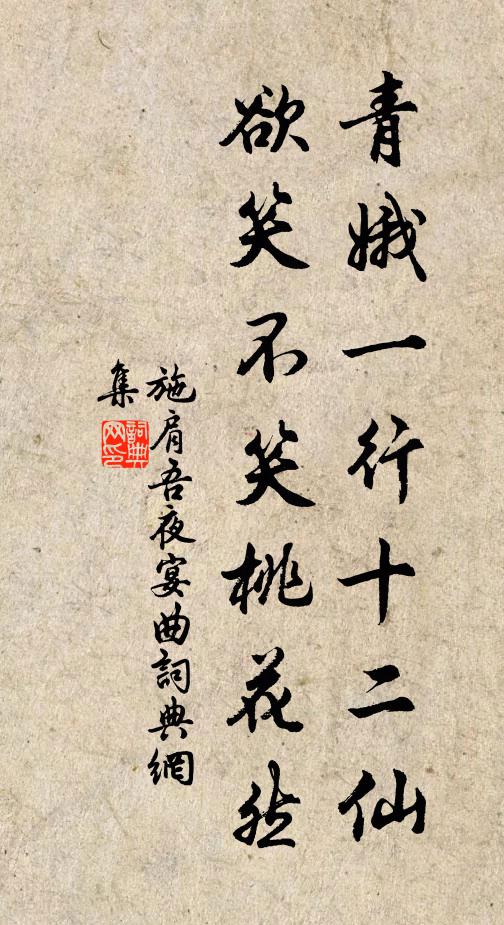 青娥一行十二仙
欲笑不笑桃花然
施肩吾夜宴曲詞典網
集
詞典
网印